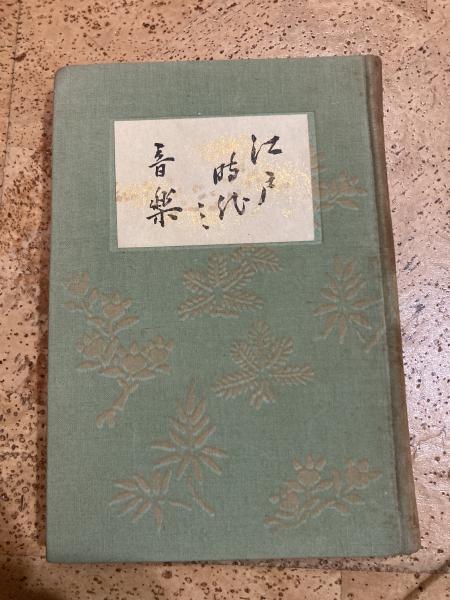 江戸
時代之
音楽